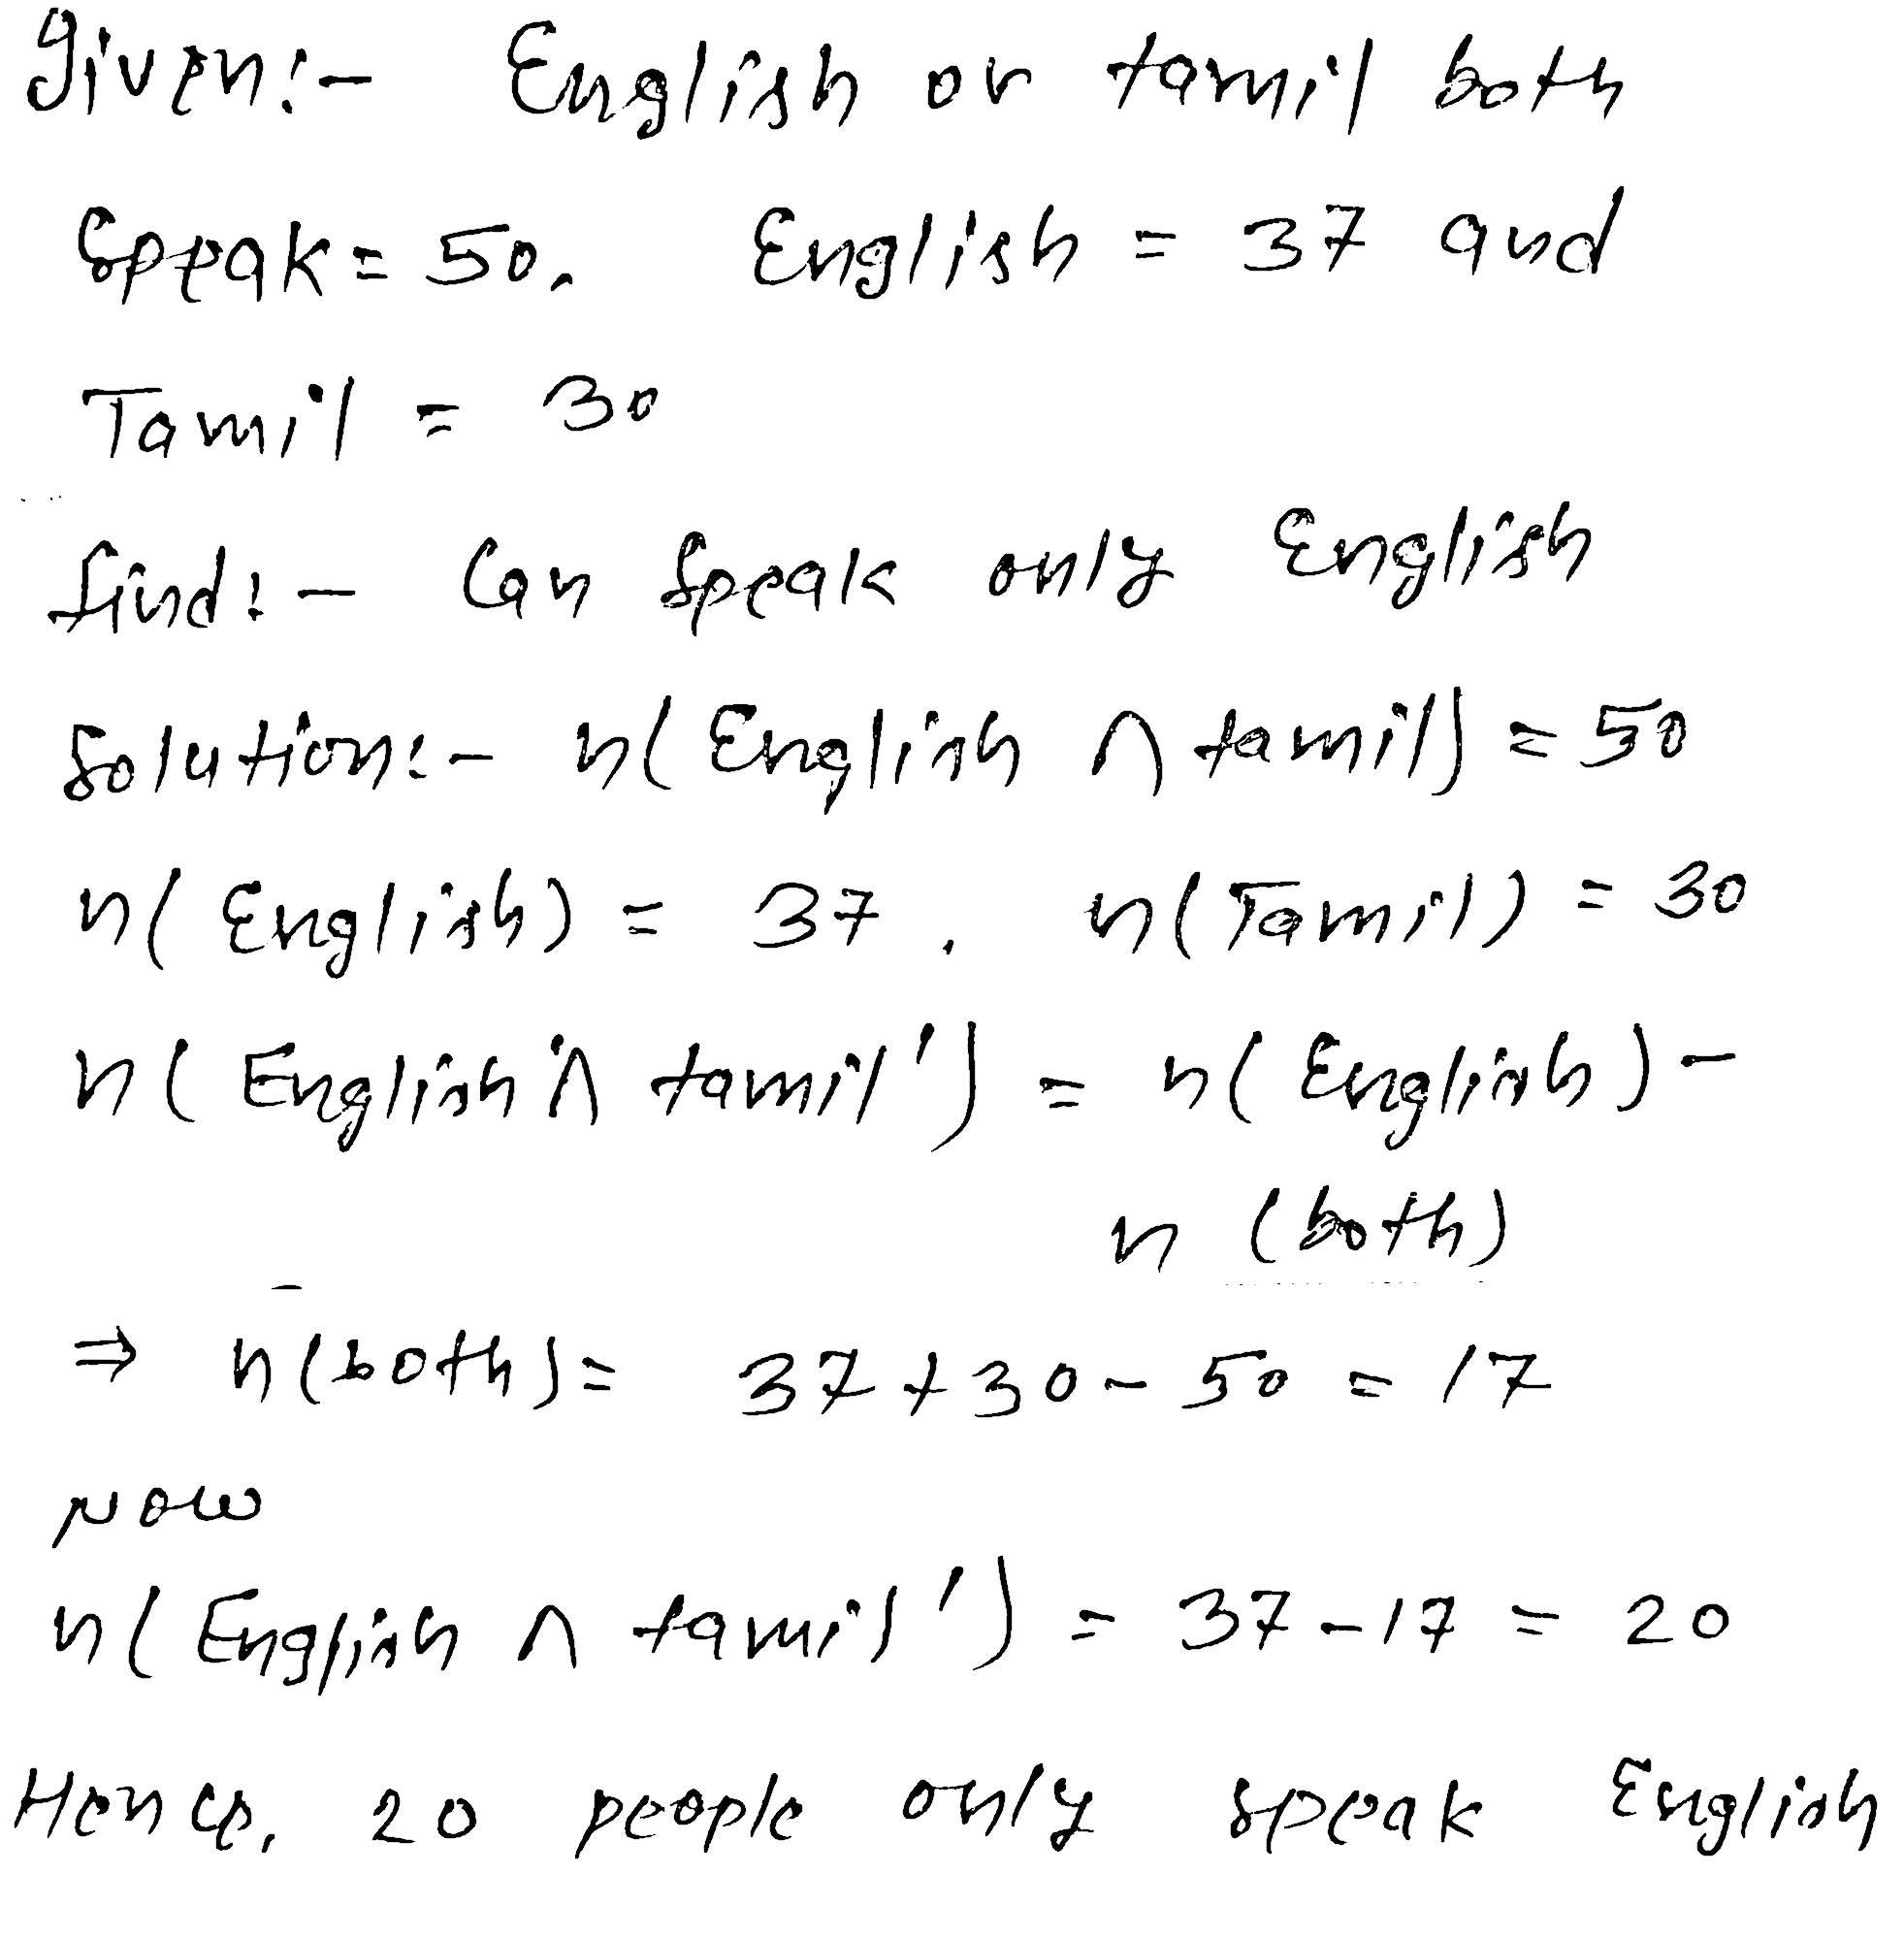 Given:- English or tamil both
Speak = 50, English = 37 and
Tamil = 30
find:- Can Speak only English
Solution:- n(English ∩ tamil) = 50
n(English) = 37, n(Tamil) = 30
n(English ∩ tamil') = n(English) -
n (both)
⇒ n(both) = 37+30-50 = 17
Now
n(English ∩ tamil') = 37-17 = 20
Hence, 20 people only speak English